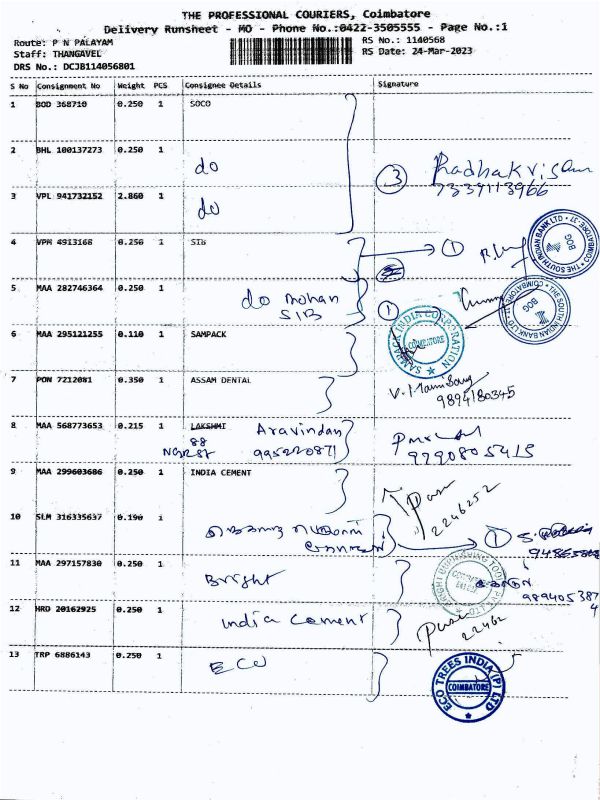 THE PROFESSIONAL COURIERS, Coimbatore
Delivery Runsheet - MO - Phone No.:0422-3505555 - Page No.:1
Route: P N PALAYAM RS No.: 1140568
Staff: THANGAVEL RS Date: 24-Mar-2023
DRS No.: DCJB114056801
S No Consignment No Weight PCS Consignee Details Signature
1 BOD 368710 0.250 1 SOCO
2 BHL 100137273 0.250 1 do
3 Radhakrisam
7339113966
3 VPL 941732152 2.860 1 do
4 VPM 4913168 0.250 1 SIb 1
THE SOUTH INDIAN BANK LTD BOG
5 MAA 282746364 0.250 1 do Mohan
SIB 1
THE SOUTH INDIAN BANK LTD BOG
6 MAA 295121255 0.110 1 SAMPACK
SAMPACK INDIA CORPORATION COIMBATORE
7 PON 7212081 0.350 1 ASSAM DENTAL
9894180345
8 MAA 568773653 0.215 1 LAKSHMI Aravindan
88 995220871
9290805415
9 MAA 299603686 0.250 1 INDIA CEMENT
2246252
10 SLM 316335637 0.190 1
1
11 MAA 297157830 0.250 1 Bright
12 HRD 20162925 0.250 1 India Cement
22462
13 TRP 6886143 0.250 1 ECO
ECO TREES INDIA (P) LTD COIMBATORE